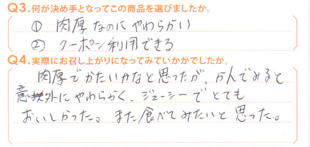 Q3.何が決め手となってこの商品を選びましたか。
① 肉厚なのにやわらかい
② クーポン利用できる
Q4.実際にお召し上がりになってみていかがでしたか。
肉厚でかたいかなと思ったが、かんでみると
意外にやわらかく、ジューシーでとても
おいしかった。また食べてみたいと思った。